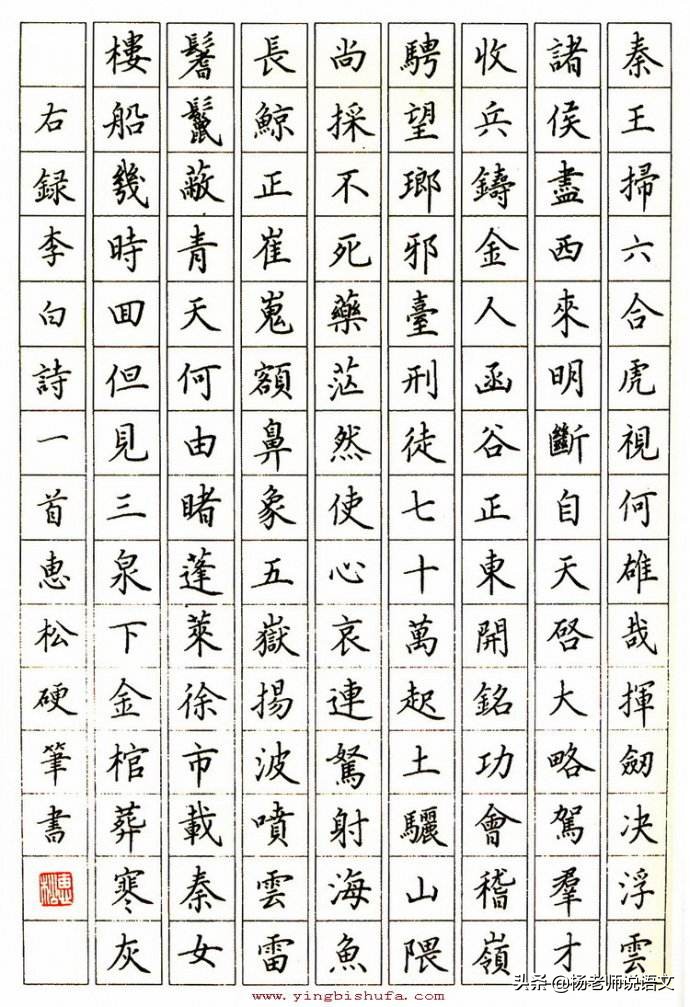 秦王掃六合虎視何雄哉揮劒决浮雲
諸侯盡西來明斷自天啓大略駕羣才
收兵鑄金人函谷正東開銘功會稽嶺
騁望瑯邪臺刑徒七十萬起土驪山隈
尚採不死藥茫然使心哀連駑射海魚
長鯨正崔嵬額鼻象五嶽揚波噴雲雷
鬐鬣蔽青天何由睹蓬萊徐市載秦女
樓船幾時回但見三泉下金棺葬寒灰
右録李白詩一首惠松硬筆書
惠松
头条 @杨老师说语文
www.yingbishufa.com